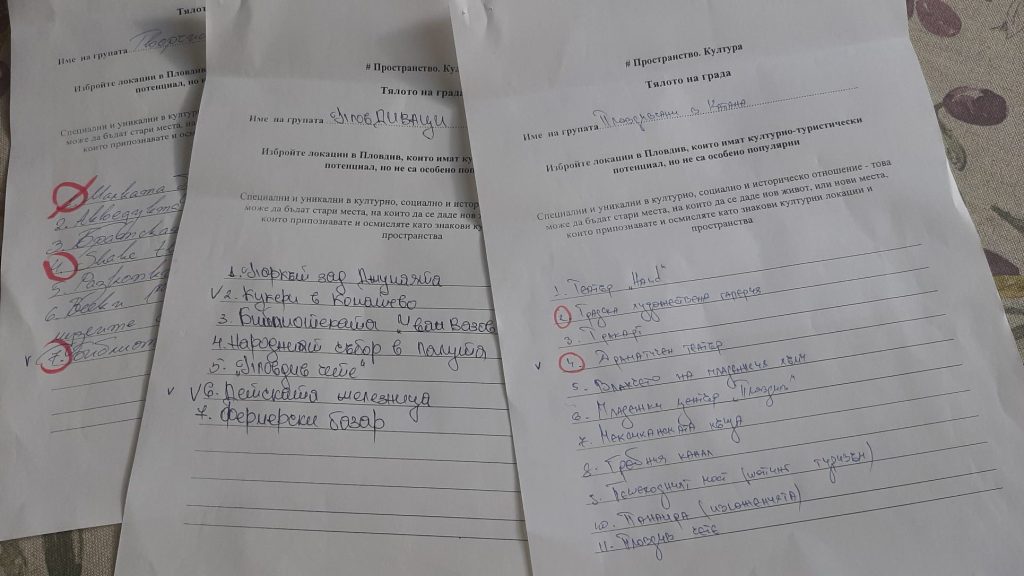 Тялот
Име на групата
Избройте локации в Пловдив,
потенциал, но н
Специални и уникални в културно
може да бъдат стари места, на
които припознавате и осмис
2.
3. Братская
4. Shake
5.
6.
7. Библиот
# Пространство. Кул
Тялото на град
Име на групата ПловДИВАЦИ
Избройте локации в Пловдив, които имат ку
потенциал, но не са особено поп
Специални и уникални в културно, социално и истори
може да бъдат стари места, на които да се даде нов
които припознавате и осмисляте като знакови
пространства
1. Паркът зад Джумаята
V 2. Кукери в Коматево
3. Библиотеката "Иван Вазов
4. Народният събор в
5. "Пловдив чете"
V V 6. Детската железница
7. Фермерски базар
# Пространство. Култура
Тялото на града
Име на групата
Избройте локации в Пловдив, които имат културно-туристически
потенциал, но не са особено популярни
Специални и уникални в културно, социално и историческо отношение - това
може да бъдат стари места, на които да се даде нов живот, или нови места,
които припознавате и осмисляте като знакови културни локации и
пространства
1. Театър
2. Градска художествена галерия
3.
V 4. Драматичен театър
5. Влакчето на младежкия хълм
6. Младежки център "Пловдив"
7. Мексиканската къща
8. Гребния канал
9. Пешеходният мост (шопинг туризъм)
10. Панаира (изложенията)
11. Пловдив чете